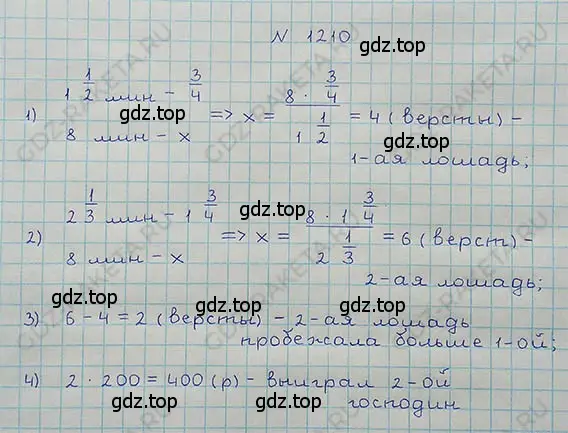 N 1210
1) 1 1/2 мин – 3/4
8 мин – x
=> x = (8 · 3/4) / (1 1/2) = 4 (версты) –
1-ая лошадь;
2) 2 1/3 мин – 1 3/4
8 мин – x
=> x = (8 · 1 3/4) / (2 1/3) = 6 (верст) –
2-ая лошадь;
3) 6 – 4 = 2 (версты) – 2-ая лошадь
пробежала больше 1-ой;
4) 2 · 200 = 400 (р) – выиграл 2-ой
господин
gdz.top
gdz.top
gdz.top
gdz.top
gdz.top
gdz.top
gdz.top
gdz.top
gdz.top
gdz.top
GDZ-RAKETA.RU